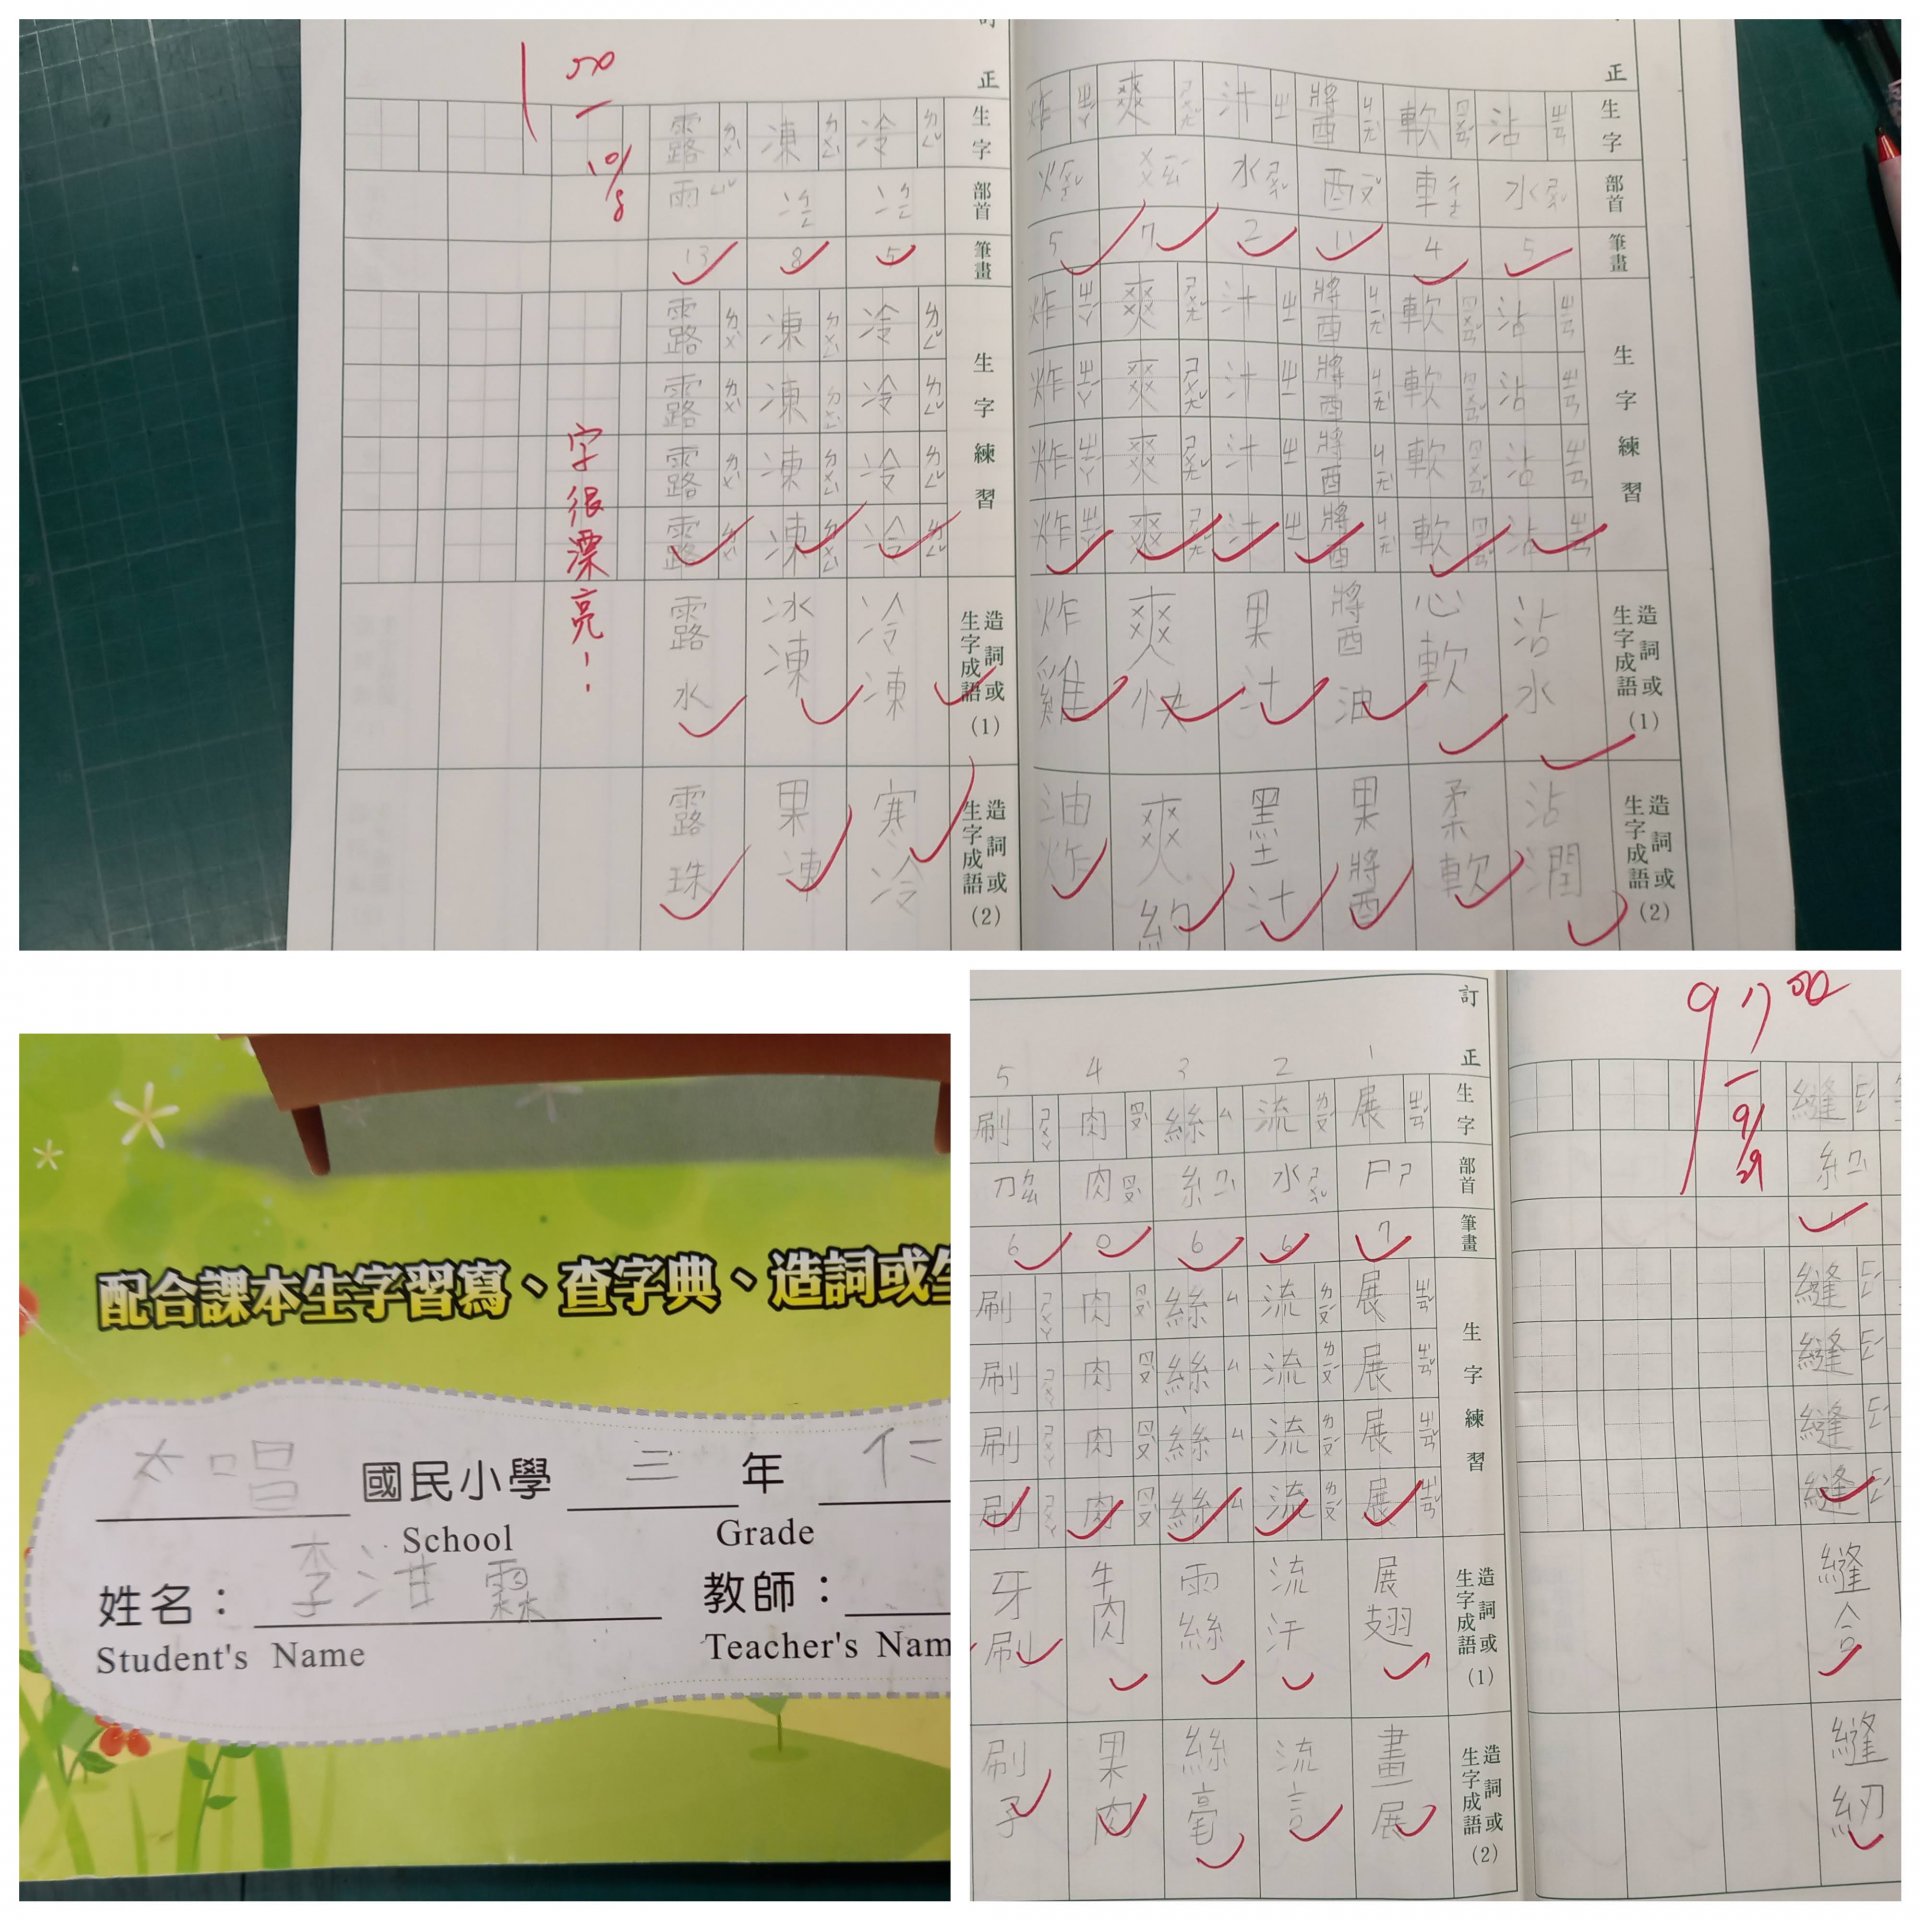 訂正 生字 部首 筆畫 生字練習 造詞或生字成語(1) 造詞或生字成語(2)
沾 ㄓㄢ 水 ㄕㄨㄟˇ 5 沾 ㄓㄢ 沾 ㄓㄢ 沾 ㄓㄢ 沾 ㄓㄢ 沾水 沾潤
軟 ㄖㄨㄢˇ 車 4 軟 ㄖㄨㄢˇ 軟 ㄖㄨㄢˇ 軟 ㄖㄨㄢˇ 軟 ㄖㄨㄢˇ 心軟 柔軟
醬 ㄐㄧㄤˋ 酉 ㄧㄡˇ 11 醬 ㄐㄧㄤˋ 醬 ㄐㄧㄤˋ 醬 ㄐㄧㄤˋ 醬 ㄐㄧㄤˋ 醬油 果醬
汁 ㄓ 水 ㄕㄨㄟˇ 2 汁 ㄓ 汁 ㄓ 汁 ㄓ 汁 ㄓ 果汁 墨汁
爽 ㄕㄨㄤˇ 爻 ㄧㄠˊ 7 爽 ㄕㄨㄤˇ 爽 ㄕㄨㄤˇ 爽 ㄕㄨㄤˇ 爽 ㄕㄨㄤˇ 爽快 爽約
炸 ㄓㄚˊ 火 ㄏㄨㄛˇ 5 炸 ㄓㄚˊ 炸 ㄓㄚˊ 炸 ㄓㄚˊ 炸 ㄓㄚˊ 炸雞 油炸
正 生字 部首 筆畫 生字練習 造詞或生字成語(1) 造詞或生字成語(2)
冷 ㄌㄥˇ 冫 5 冷 ㄌㄥˇ 冷 ㄌㄥˇ 冷 ㄌㄥˇ 冷 ㄌㄥˇ 冷凍 寒冷
凍 ㄉㄨㄥˋ 冫 8 凍 ㄉㄨㄥˋ 凍 ㄉㄨㄥˋ 凍 ㄉㄨㄥˋ 凍 ㄉㄨㄥˋ 冰凍 果凍
露 ㄌㄨˋ 雨 ㄩˇ 13 露 ㄌㄨˋ 露 ㄌㄨˋ 露 ㄌㄨˋ 露 ㄌㄨˋ 露水 露珠
100
10/8
字很漂亮!
配合課本生字習寫、查字典、造詞或
國民小學 三 年 仁
School Grade
姓名: 教師:
Student's Name Teacher's Nam
97
9/29
縫 ㄈㄥˊ 糸 11 縫 ㄈㄥˊ 縫 ㄈㄥˊ 縫 ㄈㄥˊ 縫 ㄈㄥˊ 縫合 縫紉
訂正 生字 部首 筆畫 生字練習 造詞或生字成語(1) 造詞或生字成語(2)
1 展 ㄓㄢˇ 尸 ㄕ 7 展 ㄓㄢˇ 展 ㄓㄢˇ 展 ㄓㄢˇ 展 ㄓㄢˇ 展翅 畫展
2 流 ㄌㄧㄡˊ 水 ㄕㄨㄟˇ 6 流 ㄌㄧㄡˊ 流 ㄌㄧㄡˊ 流 ㄌㄧㄡˊ 流 ㄌㄧㄡˊ 流汗 流言
3 絲 ㄙ 糸 6 絲 ㄙ 絲 ㄙ 絲 ㄙ 絲 ㄙ 雨絲 絲毫
4 肉 ㄖㄡˋ 肉 ㄖㄡˋ 0 肉 ㄖㄡˋ 肉 ㄖㄡˋ 肉 ㄖㄡˋ 肉 ㄖㄡˋ 牛肉 果肉
5 刷 ㄕㄨㄚ 刀 ㄉㄠ 6 刷 ㄕㄨㄚ 刷 ㄕㄨㄚ 刷 ㄕㄨㄚ 刷 ㄕㄨㄚ 牙刷 刷子